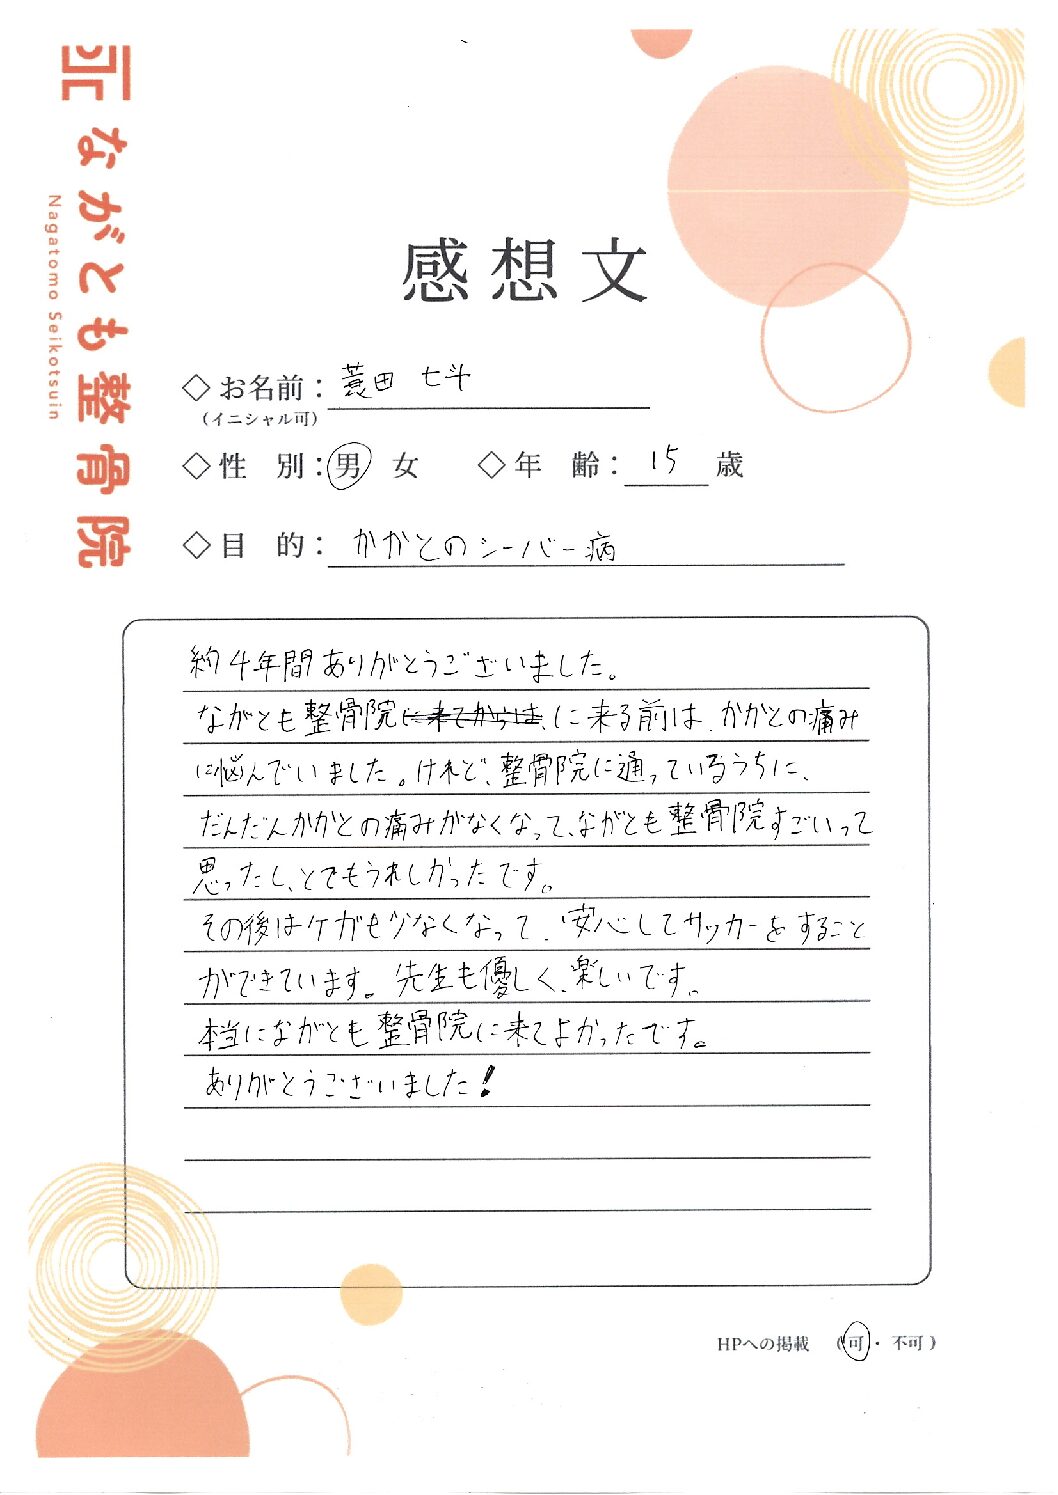 ながとも整骨院
Nagatomo Seikotsuin
感想文
◇お名前：蓑田 七斗
（イニシャル可）
◇性 別：男 女 ◇年 齢：15歳
◇目 的：かかとのシーバー病
約4年間ありがとうございました。
ながとも整骨院に来てからは、に来る前は、かかとの痛み
に悩んでいました。けれど、整骨院に通っているうちに、
だんだんかかとの痛みがなくなって、ながとも整骨院すごいって
思ったし、とてもうれしかったです。
その後はケガも少なくなって、安心してサッカーをすること
ができています。先生も優しく、楽しいです。
本当にながとも整骨院に来てよかったです。
ありがとうございました！
HPへの掲載 （可・不可）